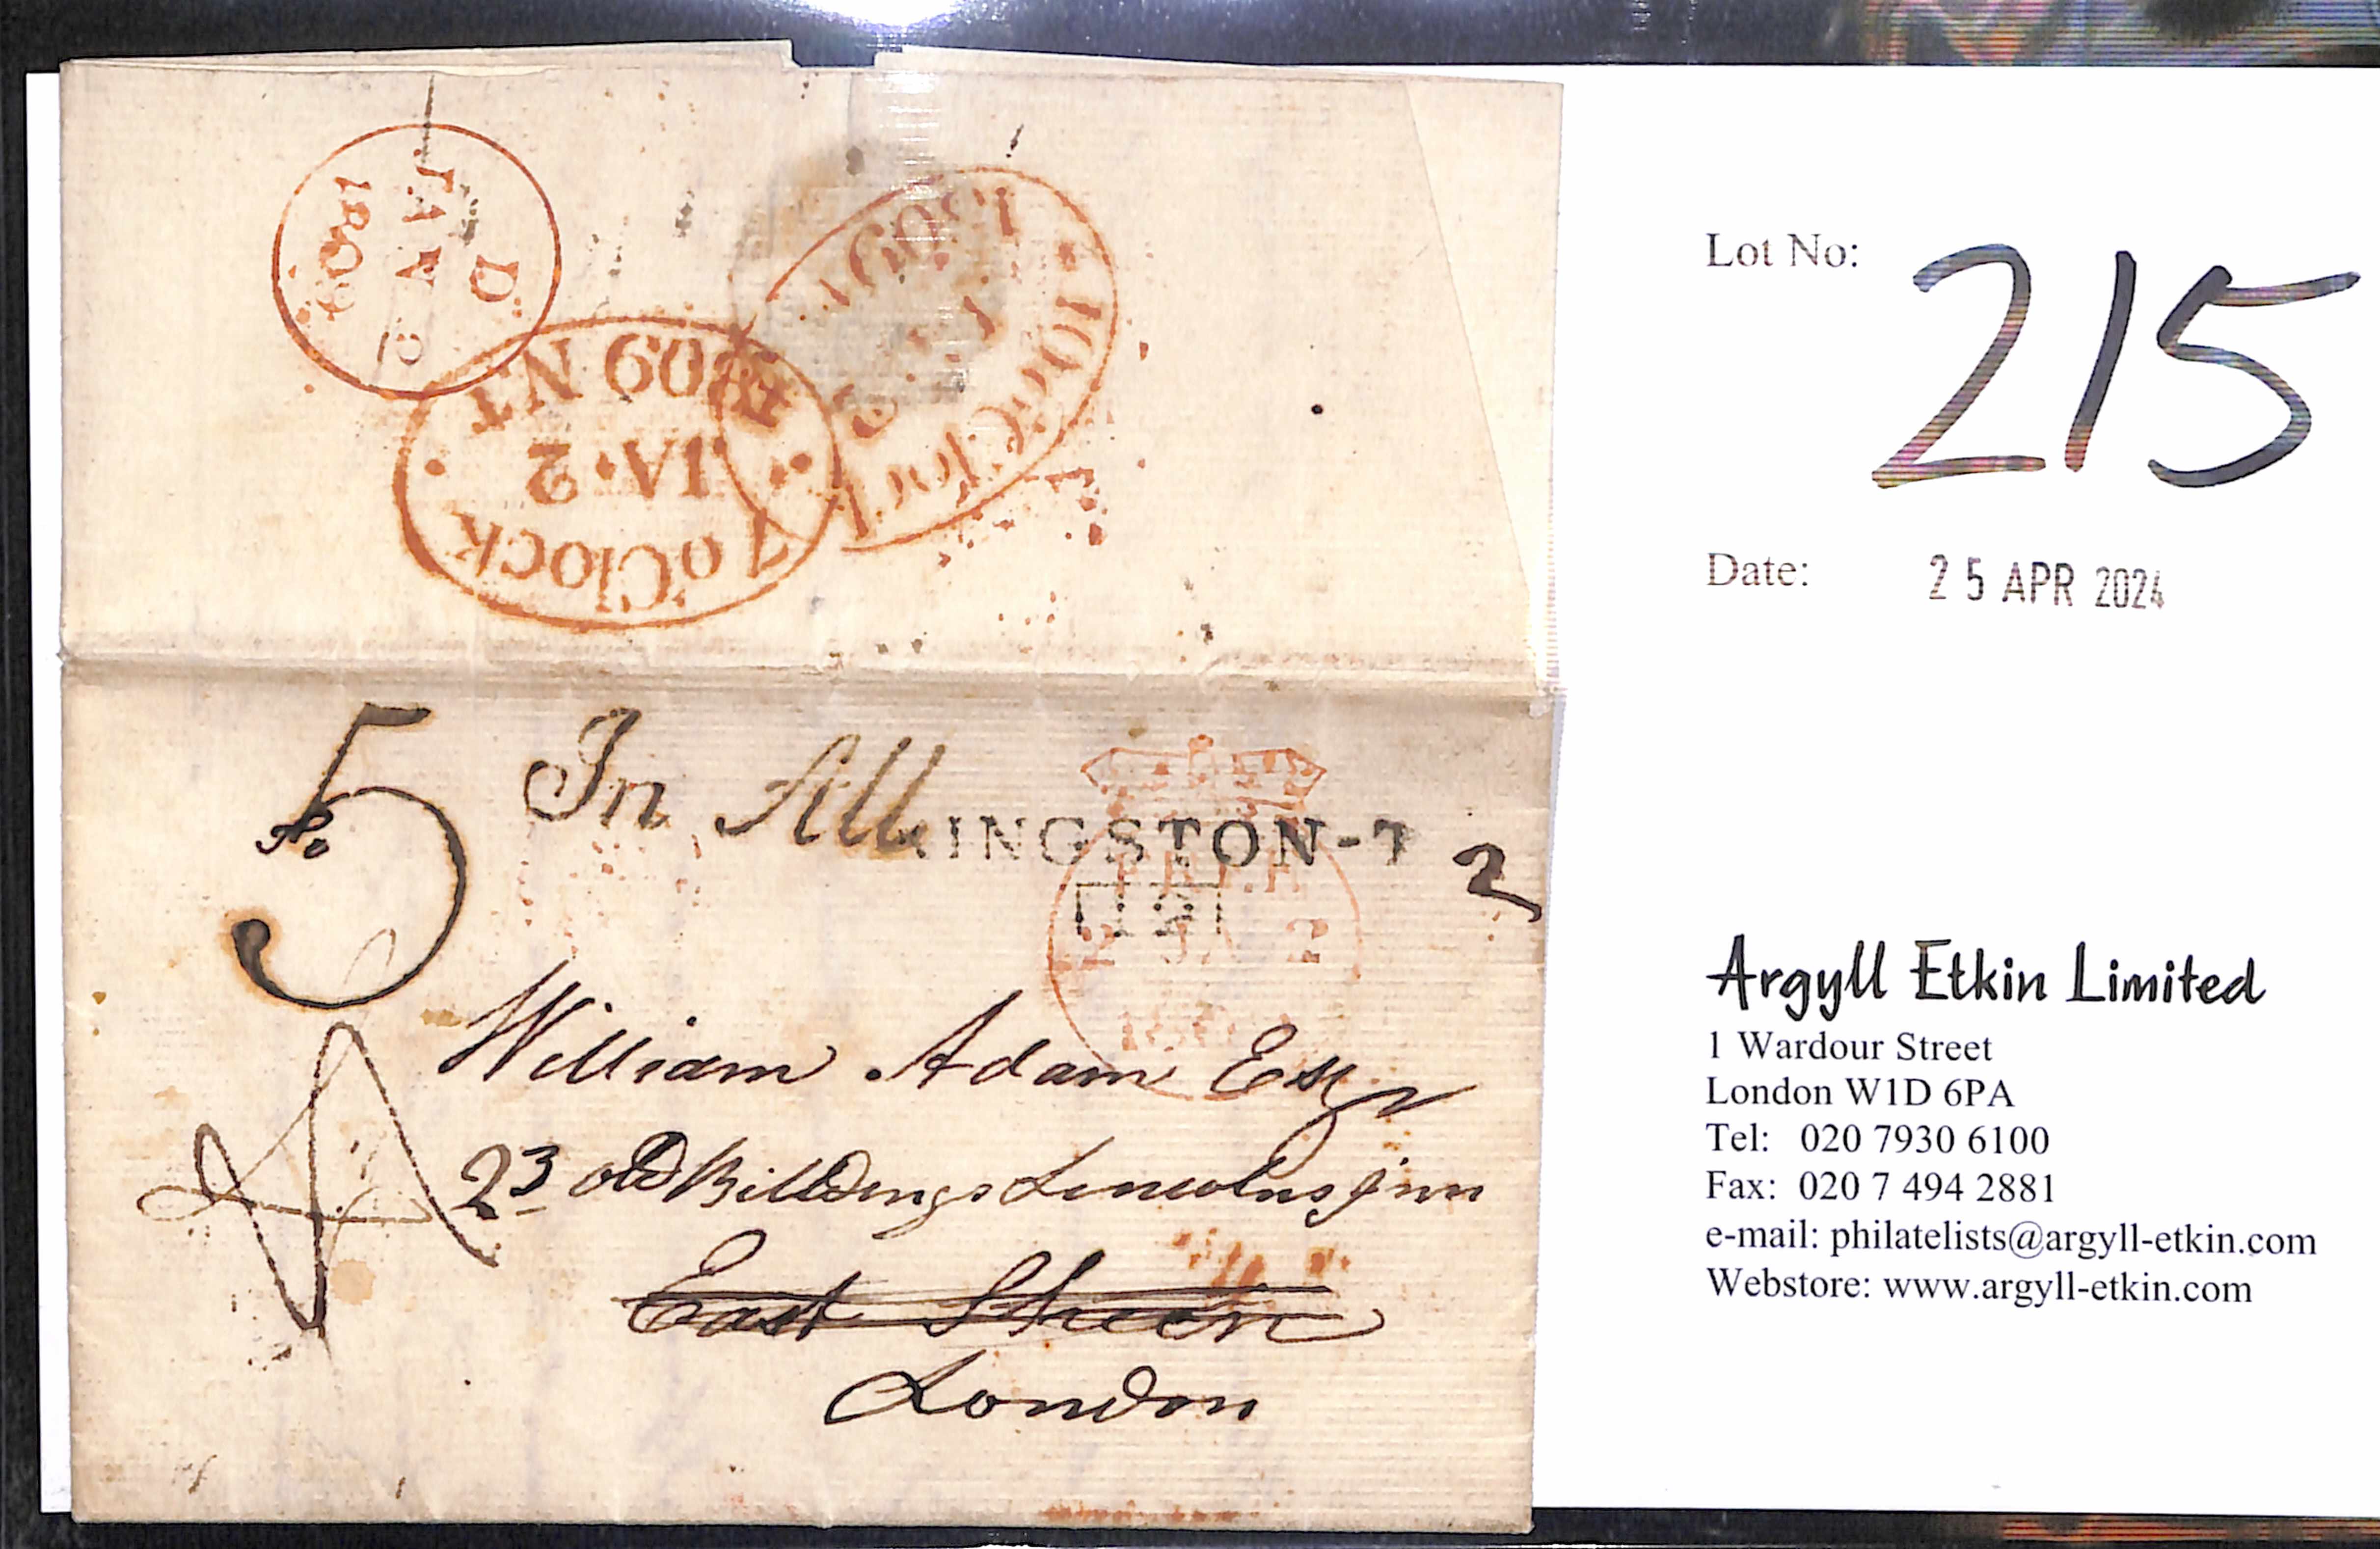 D
JAN 2
1809
7 o'Clock
JA·2
1809 NT
10 o'Clock
1809
5 In All
INGSTON-T
2
2 JA 2
William Adam Esqr
23 old Billdings Lincolns inn
East Sheen
London
Lot No: 215
Date: 25 APR 2024
Argyll Etkin Limited
1 Wardour Street
London W1D 6PA
Tel: 020 7930 6100
Fax: 020 7 494 2881
e-mail: philatelists@argyll-etkin.com
Webstore: www.argyll-etkin.com